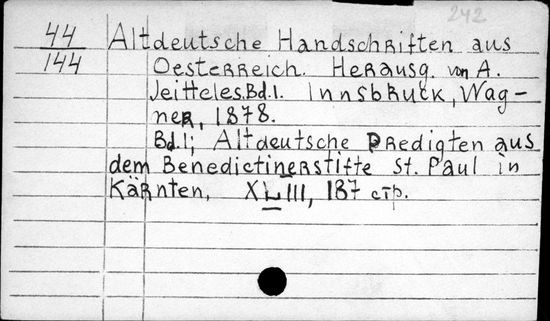 242
44 Altdeutsche Handschriften aus
144 Oesterreich. Herausg. von A.
Jeitteles. Bd. 1. Innsbruck, Wag-
ner, 1878.
Bd. 1; Altdeutsche Predigten aus
dem Benedictinerstifte St. Paul in
Kärnten, XLIII, 187 стр.